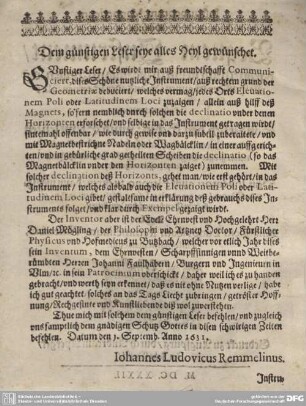 Dem günstigen Leser seye alles Heyl gewünschet.
Günstiger Leser / Es wirdt mir auß freundtschafft Communi-
ciert, dises Schöne nutzliche Instrument / auß rechtem grund der
Geometriæ deduciert / welches vermag / jedes Orts Eleuatio-
nem Poli oder Latitudinem Loci zuzaigen / allein auß hilff deß
Magnets, so fern nemblich durch solchen die declination vnder denen
Horizonten erforschet / vnd selbige in das Instrument getragen wirdt /
sintemahl offenbar / wie durch gewise vnd darzu subtil zuberaitete / vnd
mit Magnet bestrichne Nadeln oder Wagbälcklin / in einer auffgerich-
ten / vnd in gebürliche grad getheilten Scheiben die declinatio (so das
Magnetbälcklin vnder den Horizonten zaiget) zunemmen. Mit
solcher declination deß Horizonts, gehet man / wie erst gehört / in das
Instrument / welches alsbald auch die Eleuationem Poli oder Lati-
tudinem Loci gibet / gestaltsame in erklärung deß gebrauchs dises In-
struments folget / vnd klar durch Exempel gezaigt wirdt.
Der Inventor aber ist der Edel Ehrnvest vnd Hochgelehrt Herr
Daniel Mögling / der Philosophi vnd Artzney Doctor / Fürstlicher
Physicus vnd Hofmedicus zu Butzbach / welcher vor etlich Jahr dises
sein Inventum, dem Ehrvesten / Scharpffsinnigen vnnd Weitbe-
rümbten Herren Johanni Faulhabern / Burgern vnd Ingenieurn in
Vlm / ꝛc. in sein Patrocinium überschickt / daher weil ich es zuhanden
gebracht / vnd werth seyn erkennet / daß es nit ohne Nutzen verlige / habe
ich gut geachtet, solches an das Tags Liecht zubringen / getröster Hoff-
nung / Rechtgelirte von Kunstliebende diß wol zuverstehen.
Thue mich mit solchem dem günstigen Leser befehlen / vnd zugleich
vns sampstlich dem gnädigen Schutz Gottes in disen schwirigen Zeiten
befehlen. Datum den 7. Septemb. Anno 1631.
Iohannes Ludovicus Remmelinus.
Instru,